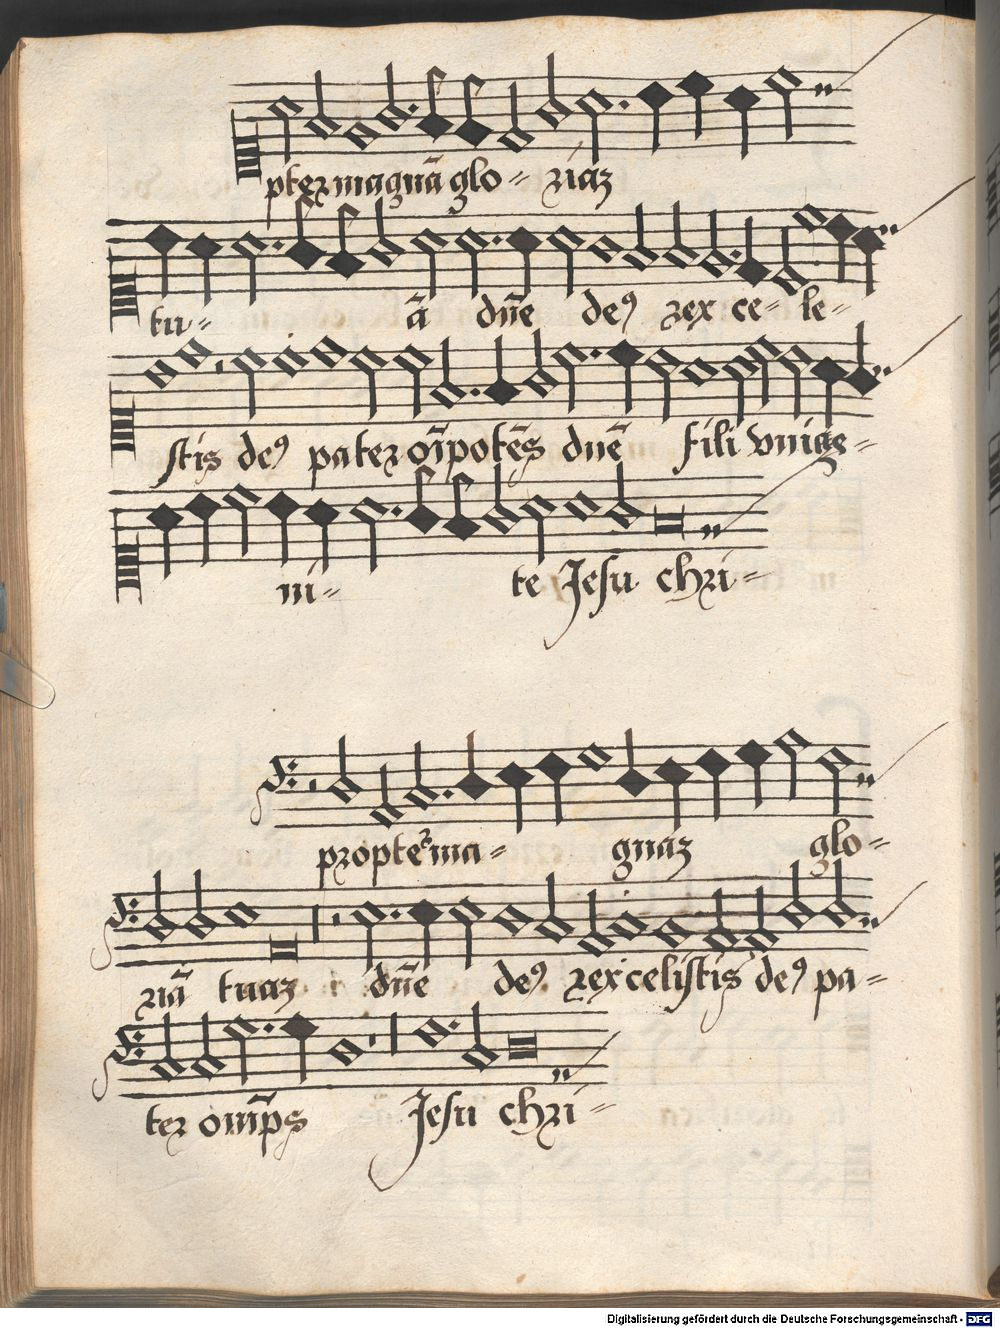 pter magnā glo- riaz
tu- ā dn̄e de9 rex ce- le-
stis de9 pater oīpotēs dnē fili vnige-
ni- te Jesu chri-
propter ma- gnaz glo-
riā tuaz dn̄e de9 rex celistis de9 pa-
ter om̄ps Jesu chri-
Digitalisierung gefördert durch die Deutsche Forschungsgemeinschaft - DFG